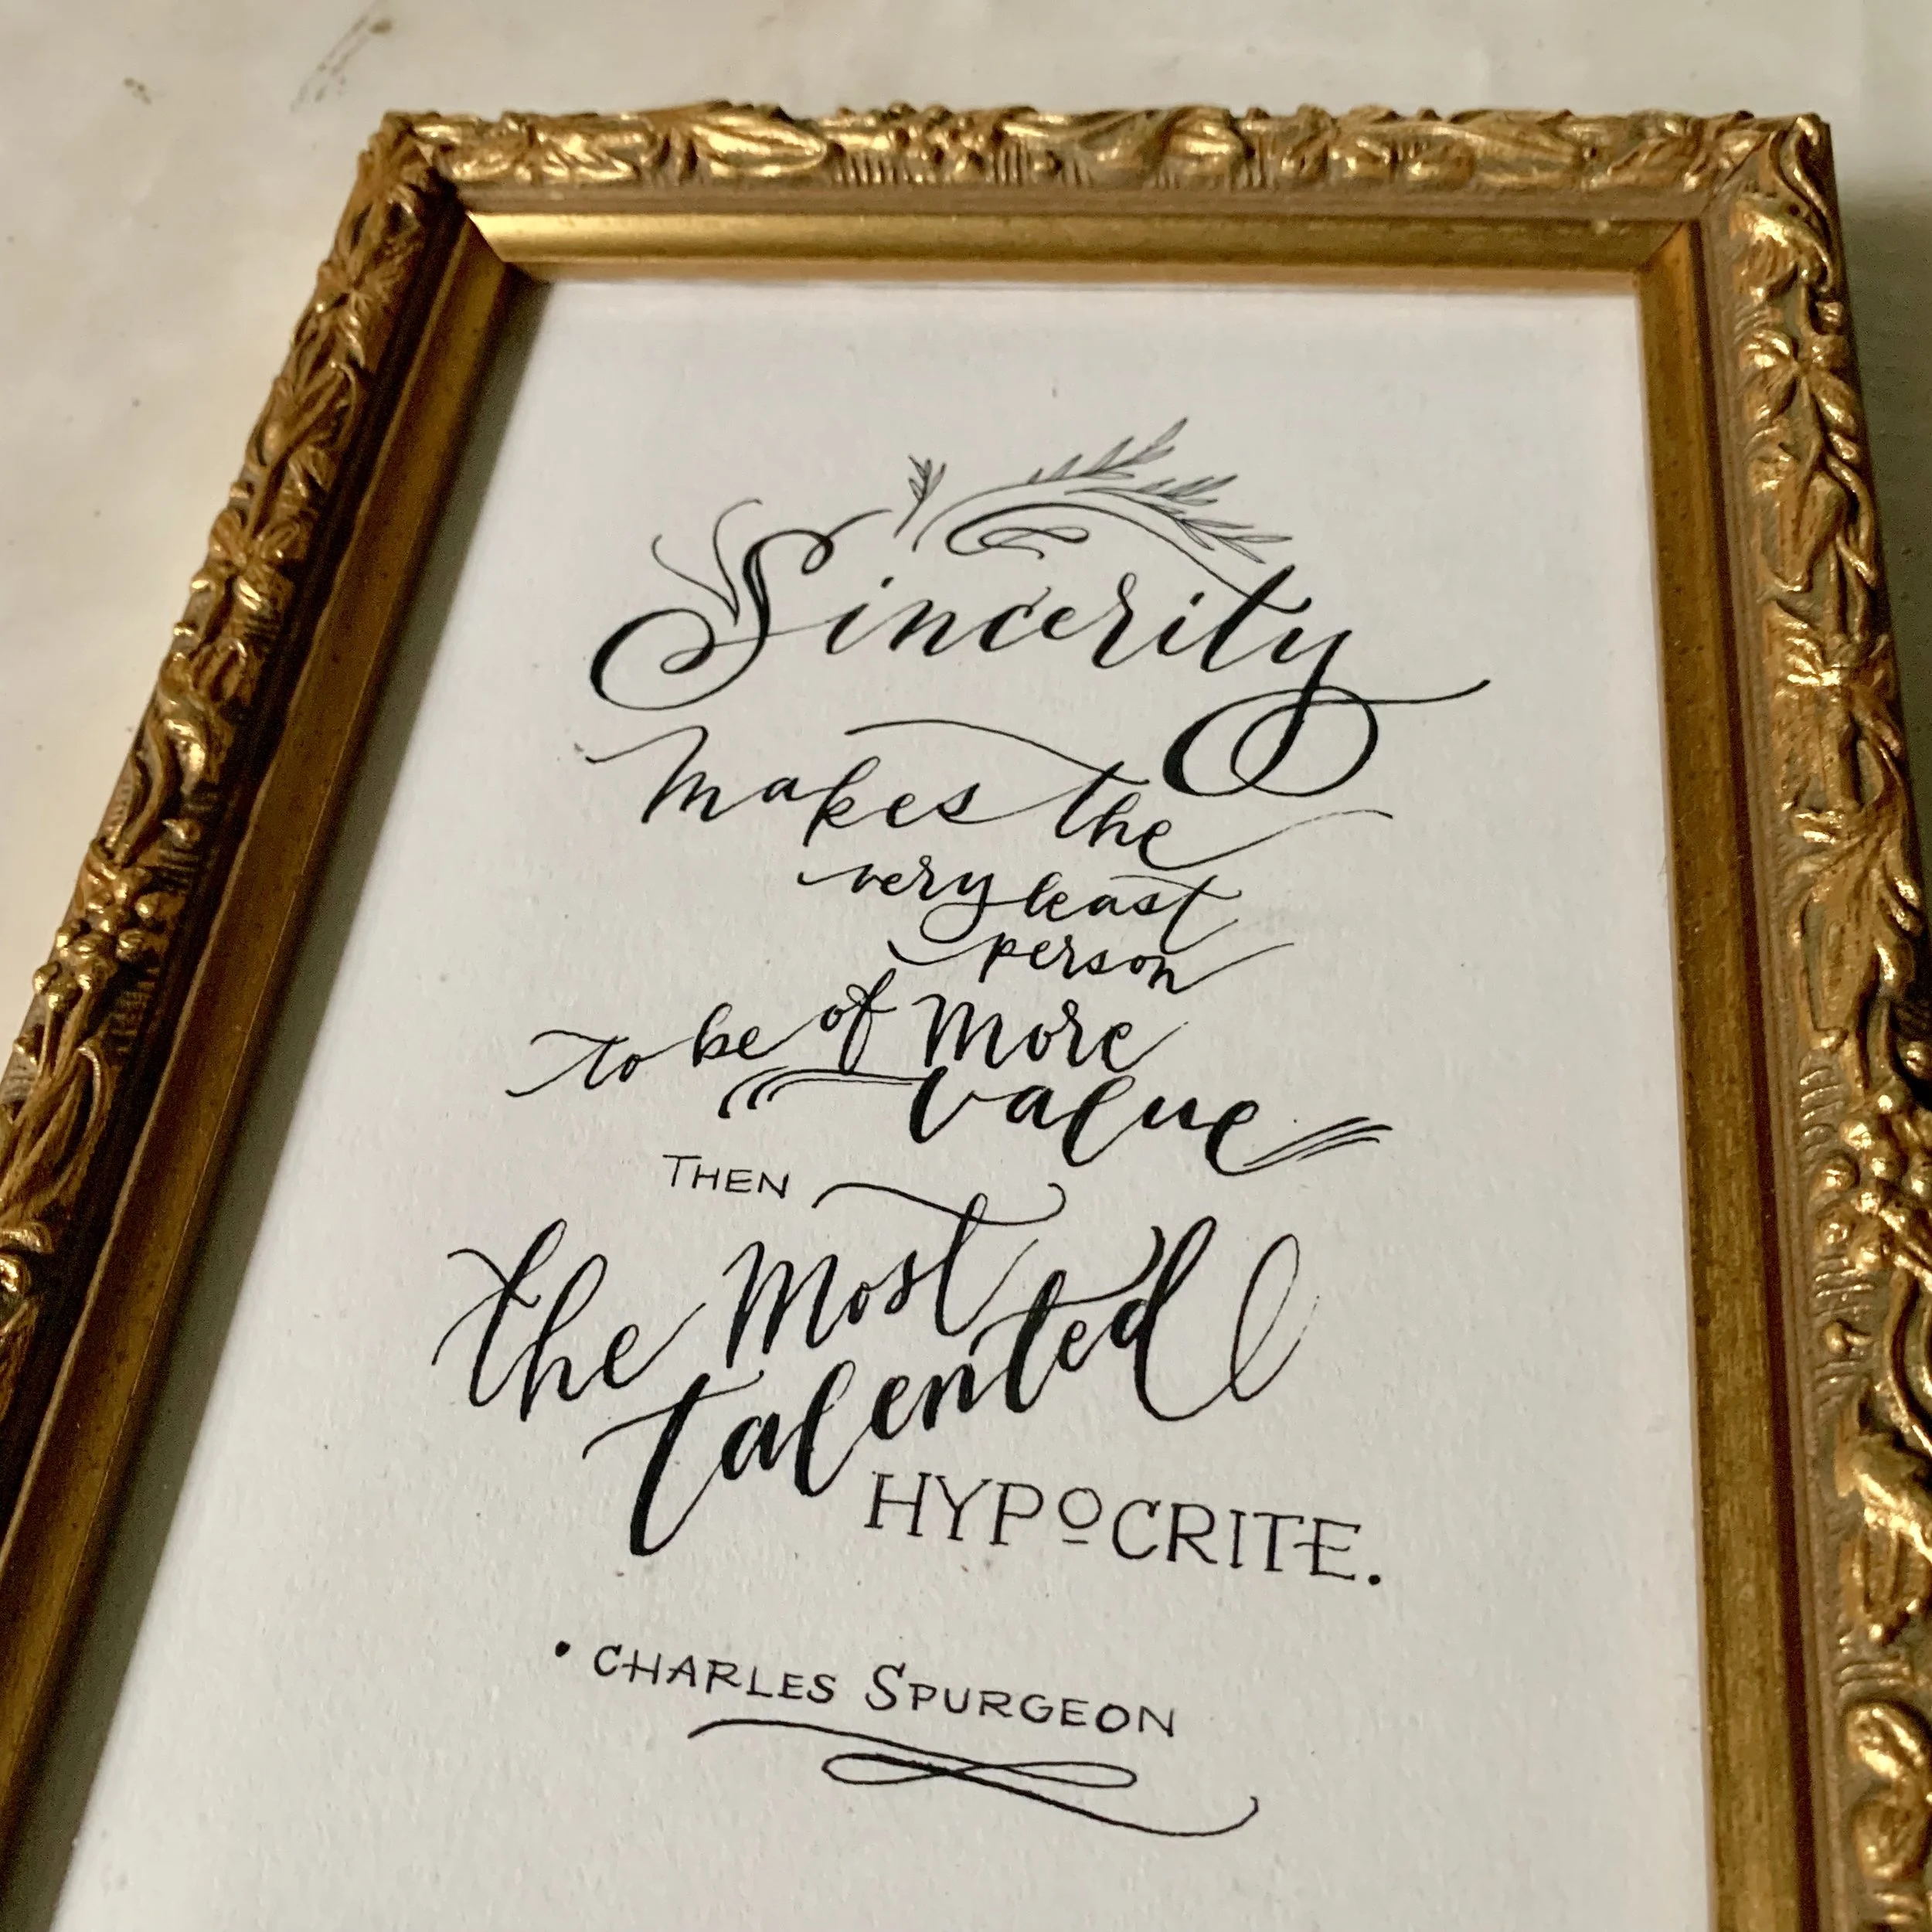 Sincerity
makes the
very least
person
to be of more
value
THEN
the most
talented
HYPOCRITE.
• CHARLES SPURGEON